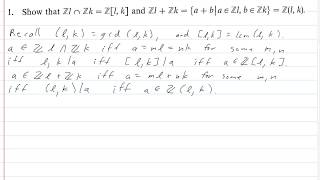 1. Show that ℤl ∩ ℤk = ℤ[l, k] and ℤl + ℤk = {a + b|a ∈ ℤl, b ∈ ℤk} = ℤ(l, k).
Recall (l, k) = gcd (l, k), and [l,k] = lcm (l, k).
a ∈ ℤl ∩ ℤk iff a = ml = nk for some m, n
iff l, k | a iff [l, k] | a iff a ∈ ℤ[l, k].
a ∈ ℤl + ℤk iff a = ml + nk for some m, n
iff (l, k) | a iff a ∈ ℤ(l, k).